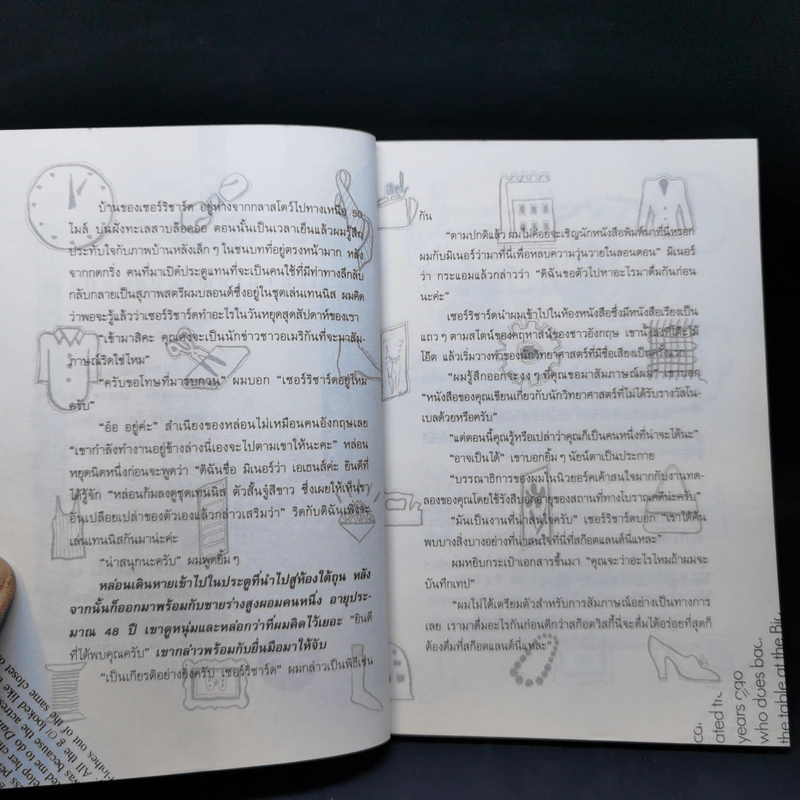 บ้านของเซอร์ริชาร์ด อยู่ห่างจากกลาสโตว์ไปทางเหนือ 50
ไมล์ บนฝั่งทะเลสาบล็อดมือ ตอนนั้นเป็นเวลาเย็นแล้วผมรู้สึก
ประทับใจกับภาพบ้านหลังเล็กๆ ในชนบทที่อยู่ตรงหน้ามาก หลัง
จากกดกริ่ง คนที่มาเปิดประตูแทนที่จะเป็นคนใช้ที่มีท่าทางลึกลับ
กลับกลายเป็นสุภาพสตรีผมบลอนด์ซึ่งอยู่ในชุดเล่นเทนนิส ผมคิด
ว่าพอจะรู้แล้วว่าเซอร์ริชาร์ดทำอะไรในวันหยุดสุดสัปดาห์ของเรา
"เข้ามาสิคะ คุณคงจะเป็นนักข่าวชาวอเมริกันที่จะมาสัม-
ภาษณ์ริดใช่ไหม"
"ครับขอโทษที่มารบกวน" ผมบอก "เซอร์ริชาร์ดอยู่ไหม
ครับ"
"อือ อยู่ค่ะ" สำเนียงของหล่อนไม่เหมือนคนอังกฤษเลย
"เขากำลังทำงานอยู่ข้างล่างนี่เองจะไปตามเขาให้นะคะ" หล่อน
หยุดนิดหนึ่งก่อนจะพูดว่า "ดิฉันชื่อ มิเนอร์ว่า เอเฮนส์ค่ะ ยินดีที่
ได้รู้จัก "หล่อนก้มลงดูชุดเทนนิส ตัวสั้นจู๋สีขาว ซึ่งเผยให้เห็นขา
อันเปลือยเปล่าของตัวเองแล้วกล่าวเสริมว่า" ริดกับดิฉันเพิ่งจะ
เล่นเทนนิสกันมาน่ะค่ะ
"น่าสนุกนะครับ" ผมพูดยิ้มๆ
หล่อนเดินหายเข้าไปในประตูที่นำไปสู่ห้องใต้ถุน หลัง
จากนั้นก็ออกมาพร้อมกับชายร่างสูงผอมคนหนึ่ง อายุประ-
มาณ 48 ปี เขาดูหนุ่มและหล่อกว่าที่ผมคิดไว้เยอะ "ยินดี
ที่ได้พบคุณครับ" เขากล่าวพร้อมกับยื่นมือมาให้จับ
"เป็นเกียรติอย่างยิ่งครับ เซอร์ริชาร์ด" ผมกล่าวเป็นพิธีเช่น
กัน
"ตามปกติแล้ว ผมไม่ค่อยจะเชิญนักหนังสือพิมพ์มาที่นี่หรอก
ผมกับมิเนอร์ว่ามาที่นี่เพื่อหลบความวุ่นวายในลอนดอน" มิเนอร์
ว่า กระแอมแล้วกล่าวว่า "ดิฉันขอตัวไปหาอะไรมาดื่มกันก่อน
นะคะ"
เซอร์ริชาร์ดนำผมเข้าไปในห้องหนังสือซึ่งมีหนังสือเรียงเป็น
แถวๆ ตามสไตน์ของคฤหาสน์ของชาวอังกฤษ เขานั่งลงที่โต๊ะไม้
โอ๊ต แล้วเริ่มวางท่าของนักวิทยาศาสตร์ที่มีชื่อเสียงเป็นครั้งแรก
"ผมรู้สึกออกจะงงๆ ที่คุณขอมาสัมภาษณ์ผม" เขาบอก
"หนังสือของคุณเขียนเกี่ยวกับนักวิทยาศาสตร์ที่ไม่ได้รับรางวัลโน-
เบลด้วยหรือครับ"
"แต่ตอนนี้คุณรู้หรือเปล่าว่าคุณก็เป็นคนหนึ่งที่น่าจะได้นะ"
"อาจเป็นได้" เขาบอกยิ้มๆ นัยน์ตาเป็นประกาย
"บรรณาธิการของผมในนิวยอร์คเค้าสนใจมากกับงานทด-
ลองของคุณโดยใช้รังสีบอกอายุของสถานที่ทางโบราณคดีน่ะครับ"
"มันเป็นงานที่น่าสนใจครับ" เซอร์ริชาร์ดบอก "เราได้ค้น
พบบางสิ่งบางอย่างที่น่าสนใจที่นี่ที่สก๊อตแลนด์นี่แหละ"
ผมหยิบกระเป๋าเอกสารขึ้นมา "คุณจะว่าอะไรไหมถ้าผมจะ
บันทึกเทป"
"ผมไม่ได้เตรียมตัวสำหรับการสัมภาษณ์อย่างเป็นทางการ
เลย เรามาดื่มอะไรกันก่อนดีกว่าสก๊อตวิสกี้นี่จะดื่มได้อร่อยที่สุดก็
ต้องดื่มที่สก๊อตแลนด์นี่แหละ"
years ago
who does bac
the table at the Bir
same closet
clothes out of the
All the g
was because the actres